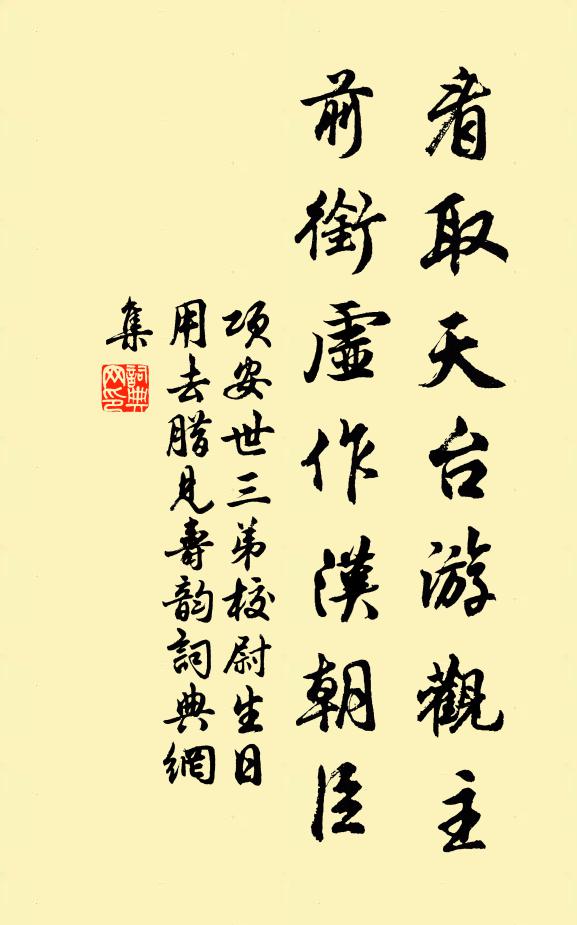 看取天台游觀主
前銜虛作漢朝臣
項安世三弟校尉生日
用去腊見壽韵詞典網
集
詞典網印